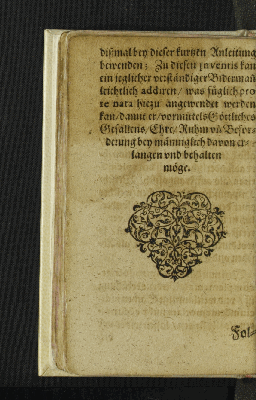 dißmal bey dieser kurtzen Anleitung
bewenden: Zu diesen inventis kan
ein jeglicher verständiger Biderman
leichtlich addirn / was füglich pro
re nata hiezu angewendet werden
kan / damit er / vormittels Götliches
Gefallens / Ehre / Ruhm vñ Beför-
derung bey männiglich davon er-
langen vnd behalten
möge.
Fol-